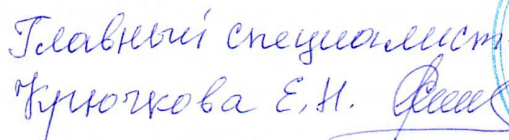 Главный специалист
Крючкова Е.Н.